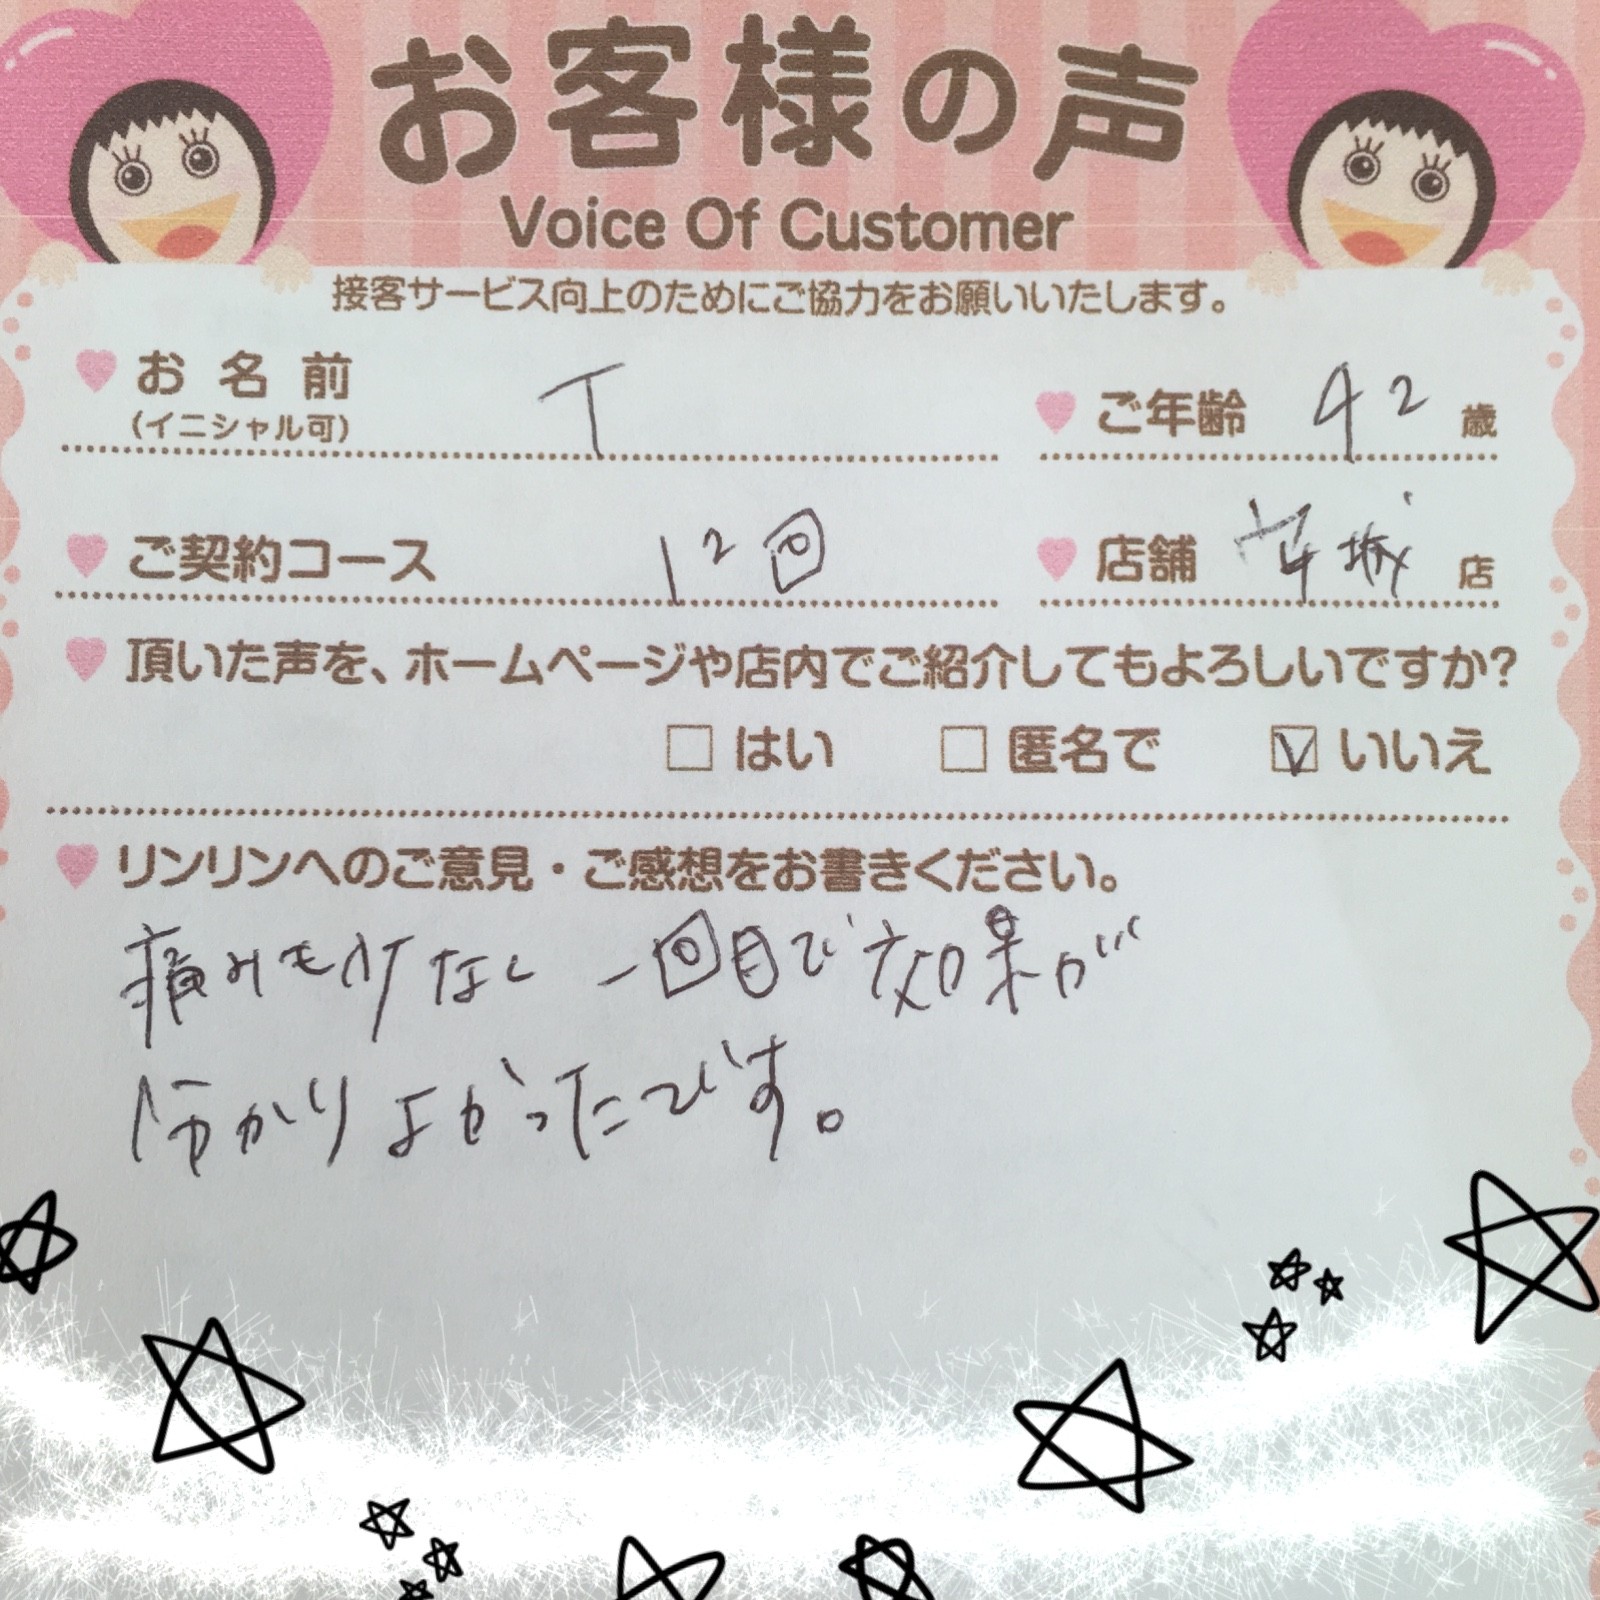 お客様の声
Voice Of Customer
接客サービス向上のためにご協力をお願いいたします。
お名前 T ご年齢 42 歳
(イニシャル可)
ご契約コース 12回 店舗 安城 店
頂いた声を、ホームページや店内でご紹介してもよろしいですか?
はい 匿名で いいえ
リンリンへのご意見・ご感想をお書きください。
痛みもなし 一回目で効果が
分かりよかったです。